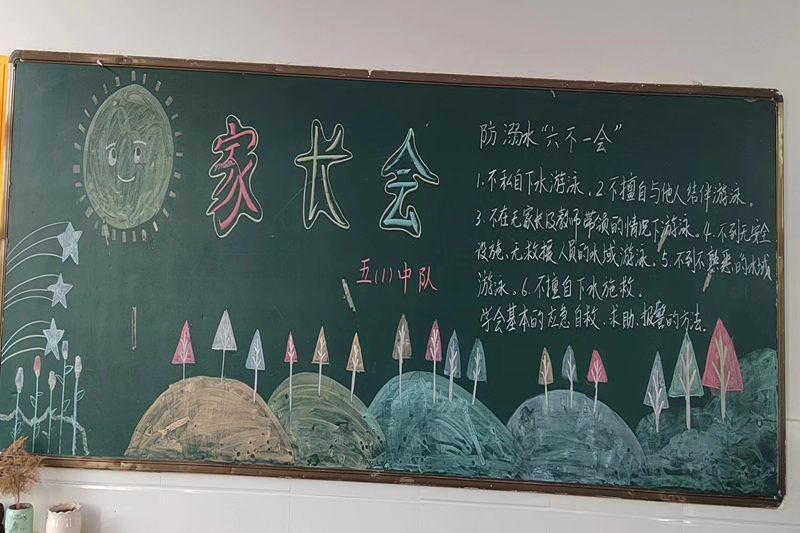 家长会
五(1)中队
防溺水“六不一会”
1.不私自下水游泳.2.不擅自与他人结伴游泳.
3.不在无家长及教师带领的情况下游泳.4.不到无安全
设施、无救援人员的水域游泳.5.不到不熟悉的水域
游泳.6.不擅自下水施救.
学会基本的应急自救、求助、报警的方法.